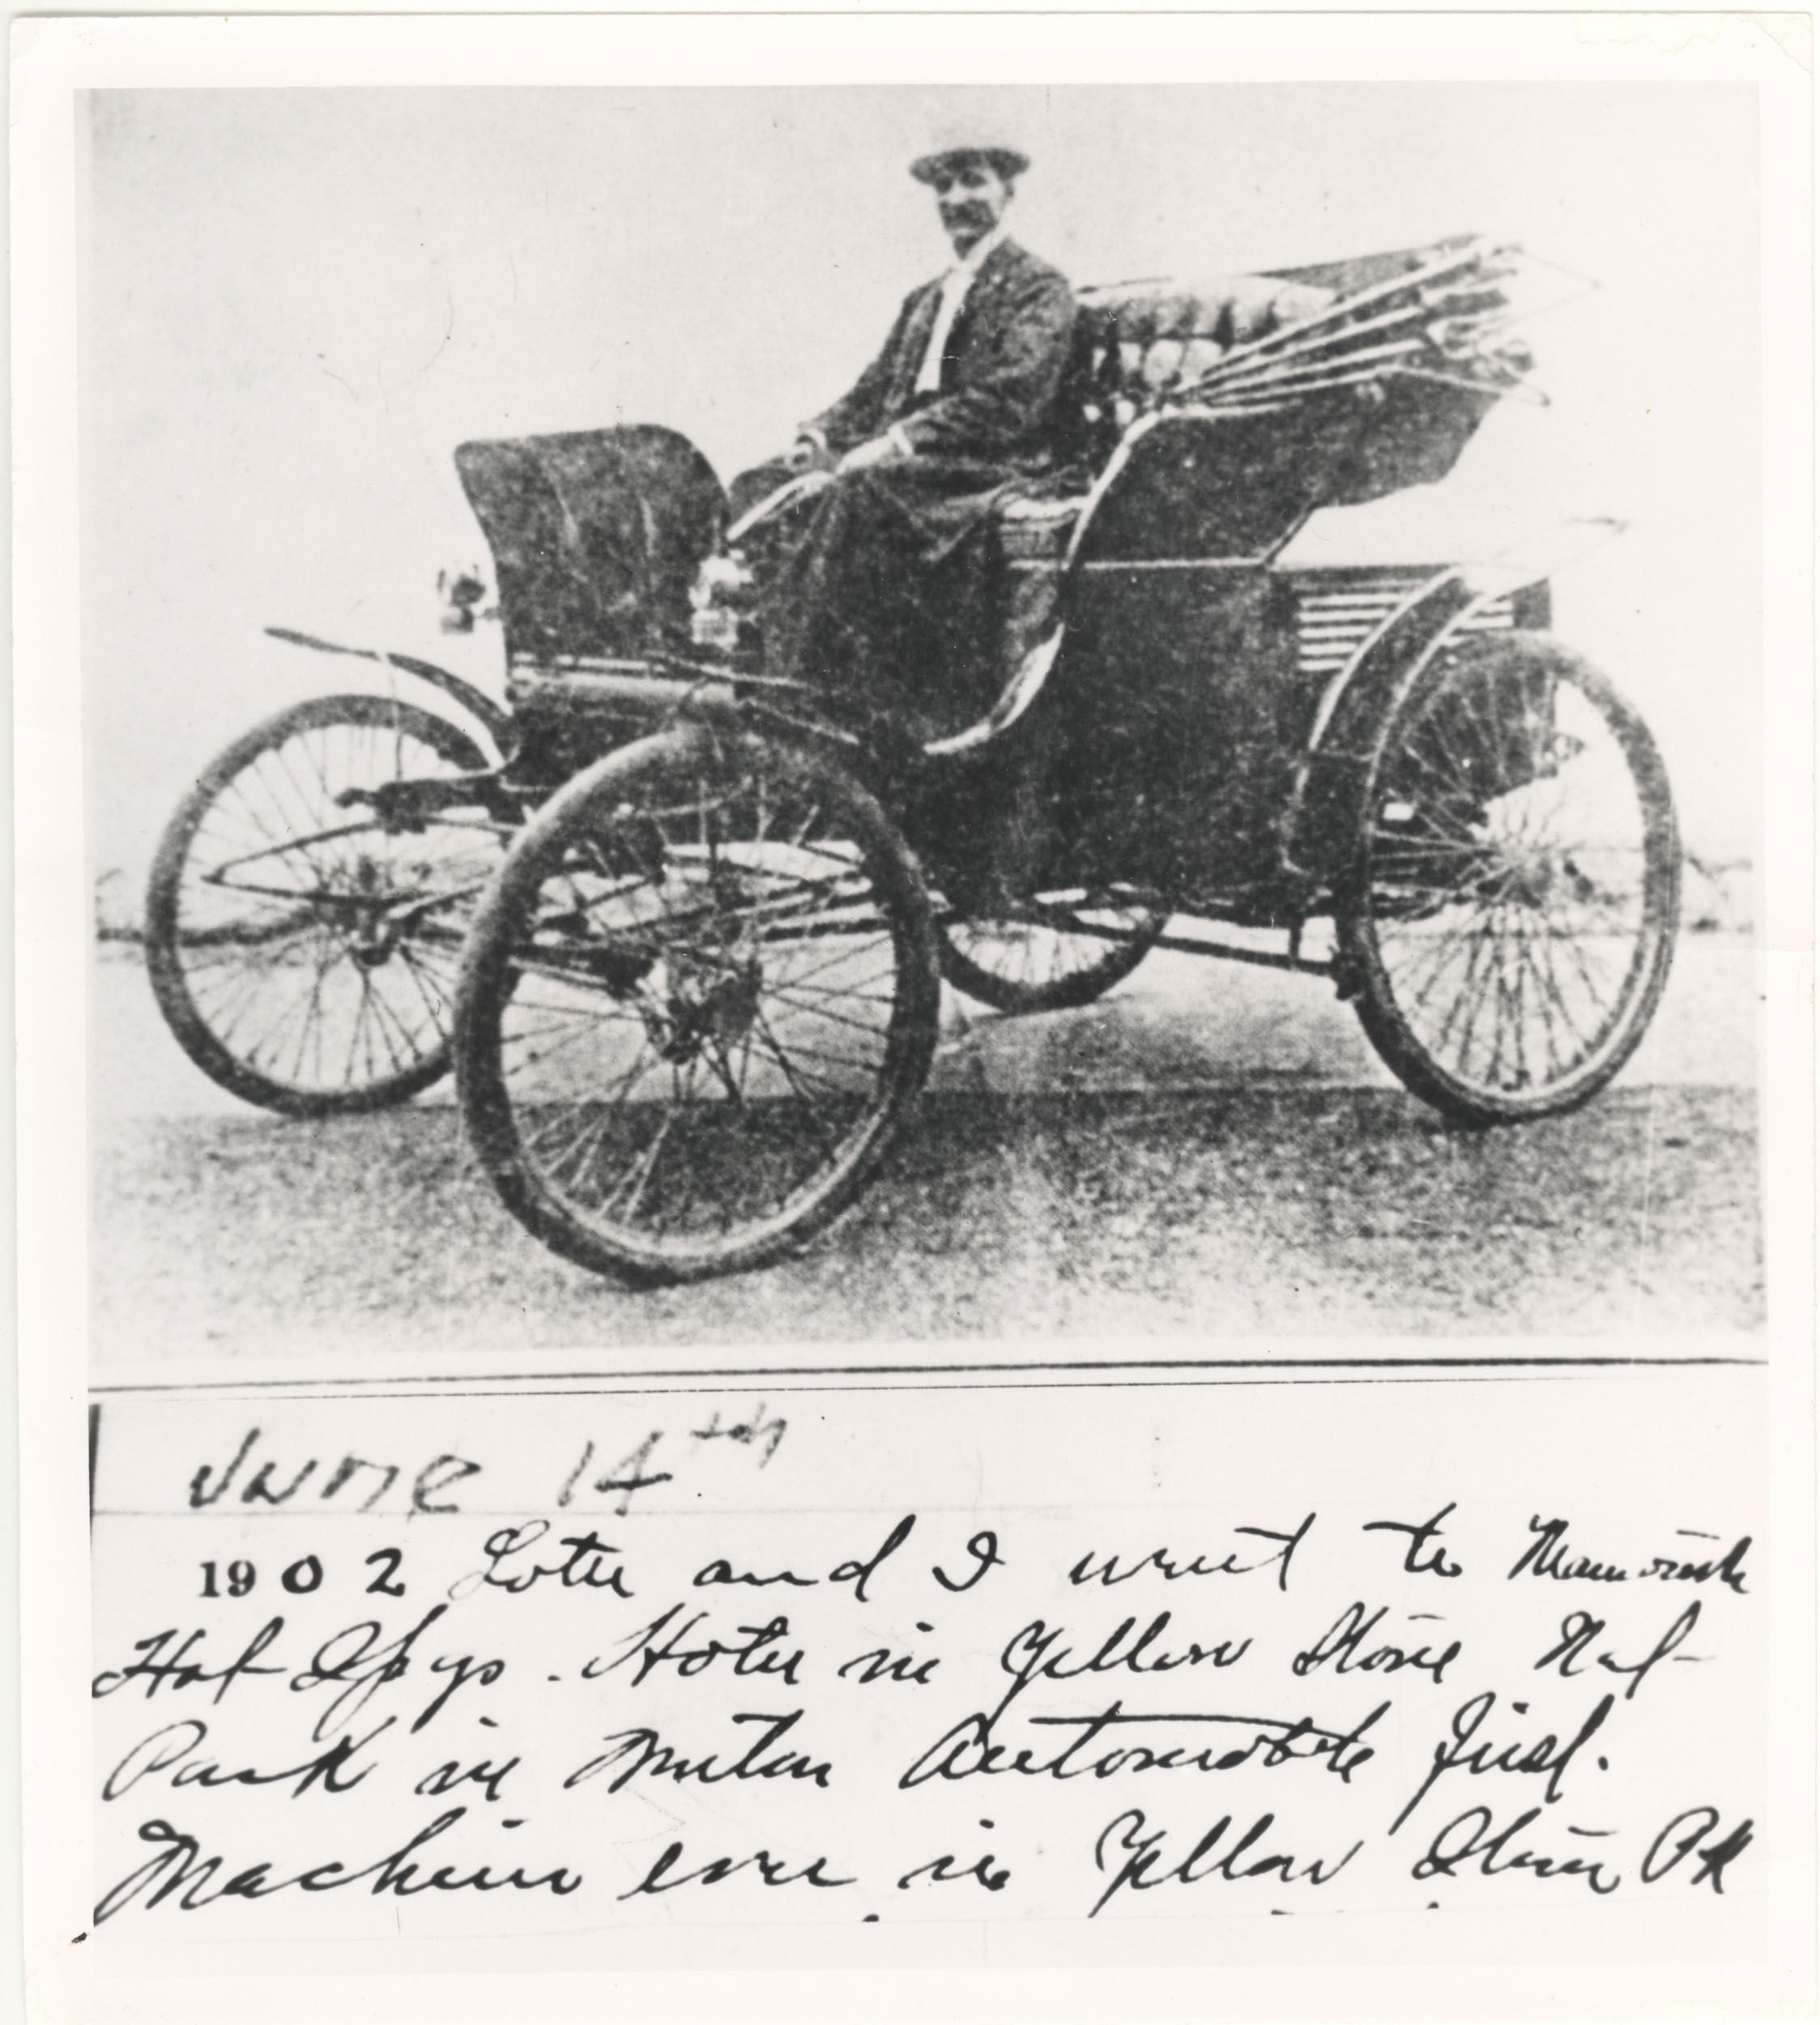 June 14th
1902 and I went to Mammoth
Hot Spgs. Hotel in Yellow Stone Nat
Park in Winton Automobile First.
Machine ever in Yellow Stone Pk